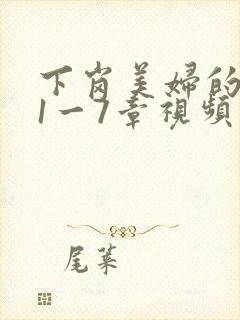 下岗美婦的
1一7章視頻
尾菜